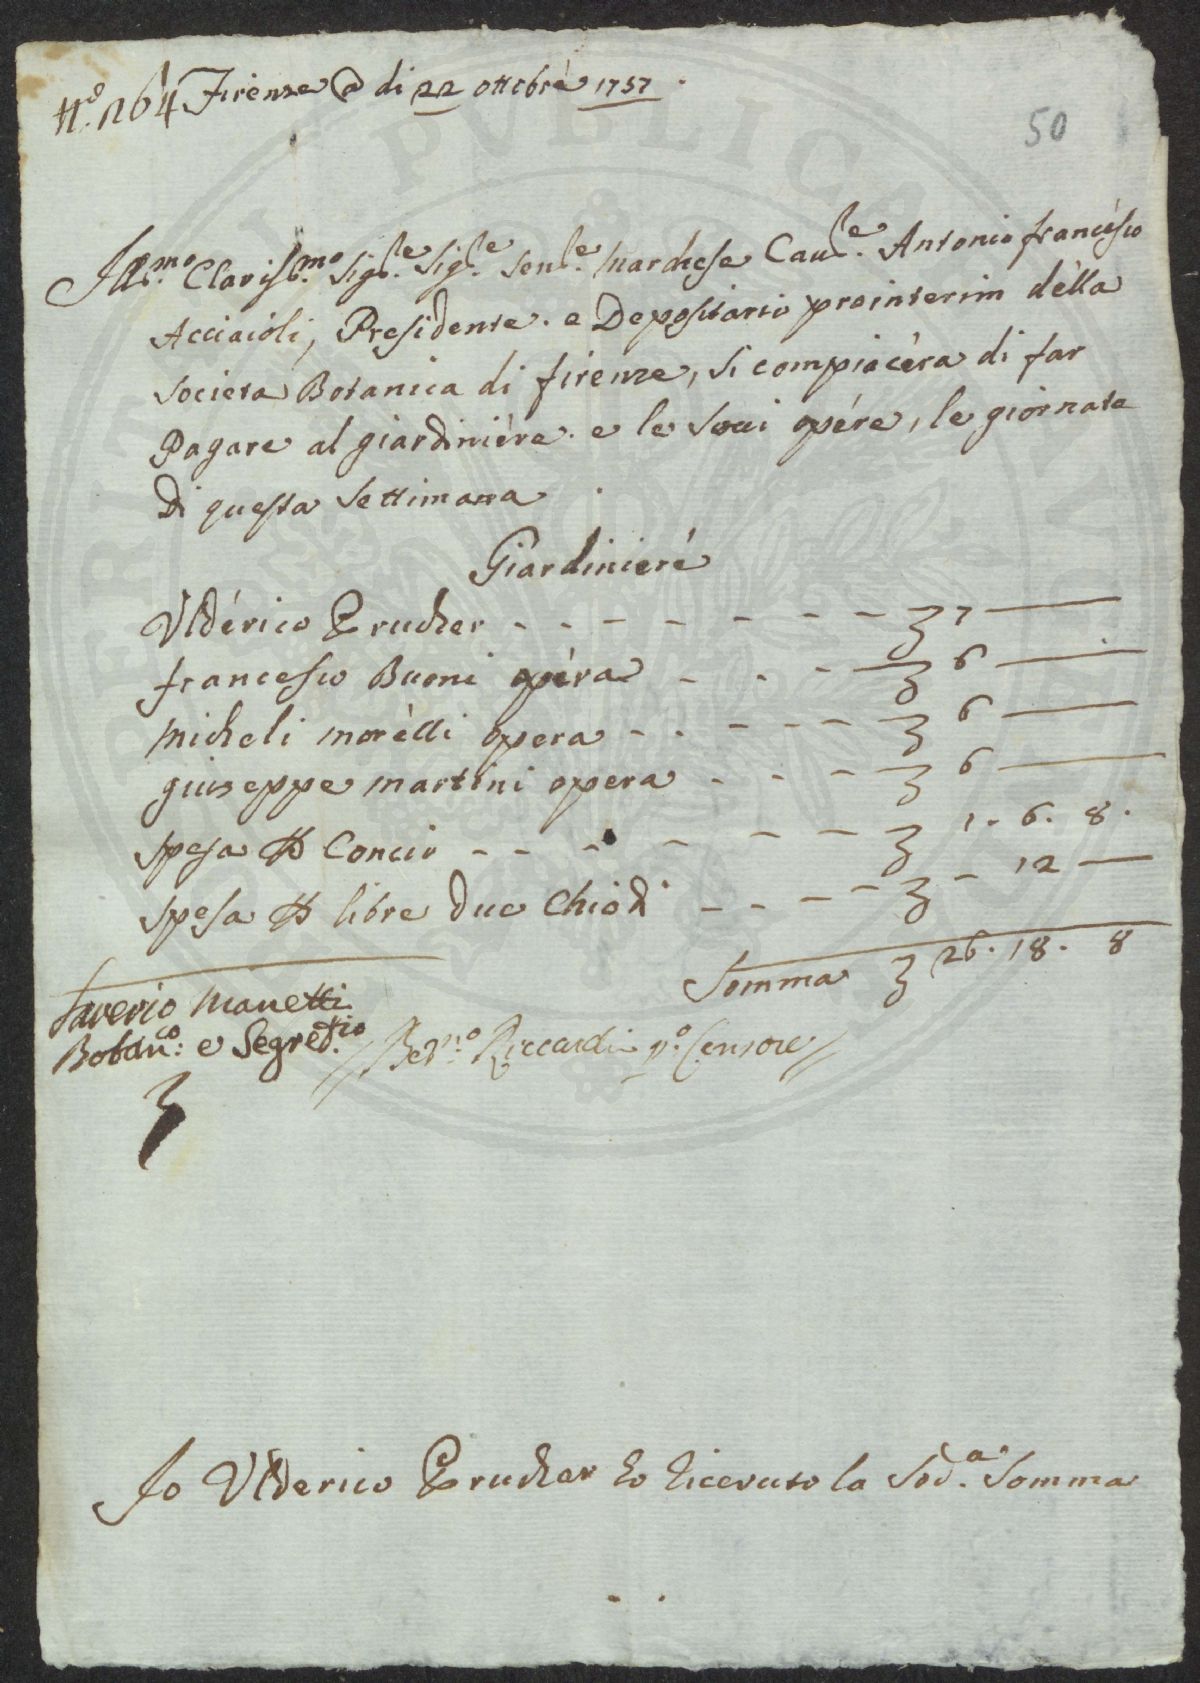 N.º 264 Firenze @ di 22 ottobre 1757.
50
Ill.mo Claris.mo Sig.re Sig.re Sen.re Marchese Cau.re Antonio francesco
Acciaioli, Presidente. e Depositario prointerim délla
Societa Botanica di firenze, si compiacéra di far
Pagare al giardiniére. e le Suoi opére, le giornate
Di questa Settimana.
Giardinieré
Uldérico Prucher - - - - - - - ʒ 7 —
francesco Buoni opéra - - - ʒ 6 —
Micheli morélli opera - - - - - ʒ 6 —
giuseppe martini opera - - - ʒ 6 —
Spesa P Concio - - - - - - - ʒ 1. 6. 8.
Spesa P libre due Chiodi - - - - ʒ - 12 —
Somma ʒ 26. 18. 8
Saverio Manetti
Botan.co: e Segret.rio
//Ber.no Riccardi p.º Censore//
Jo Ulderico Prucher ho ricevuto la Sod.a Somma